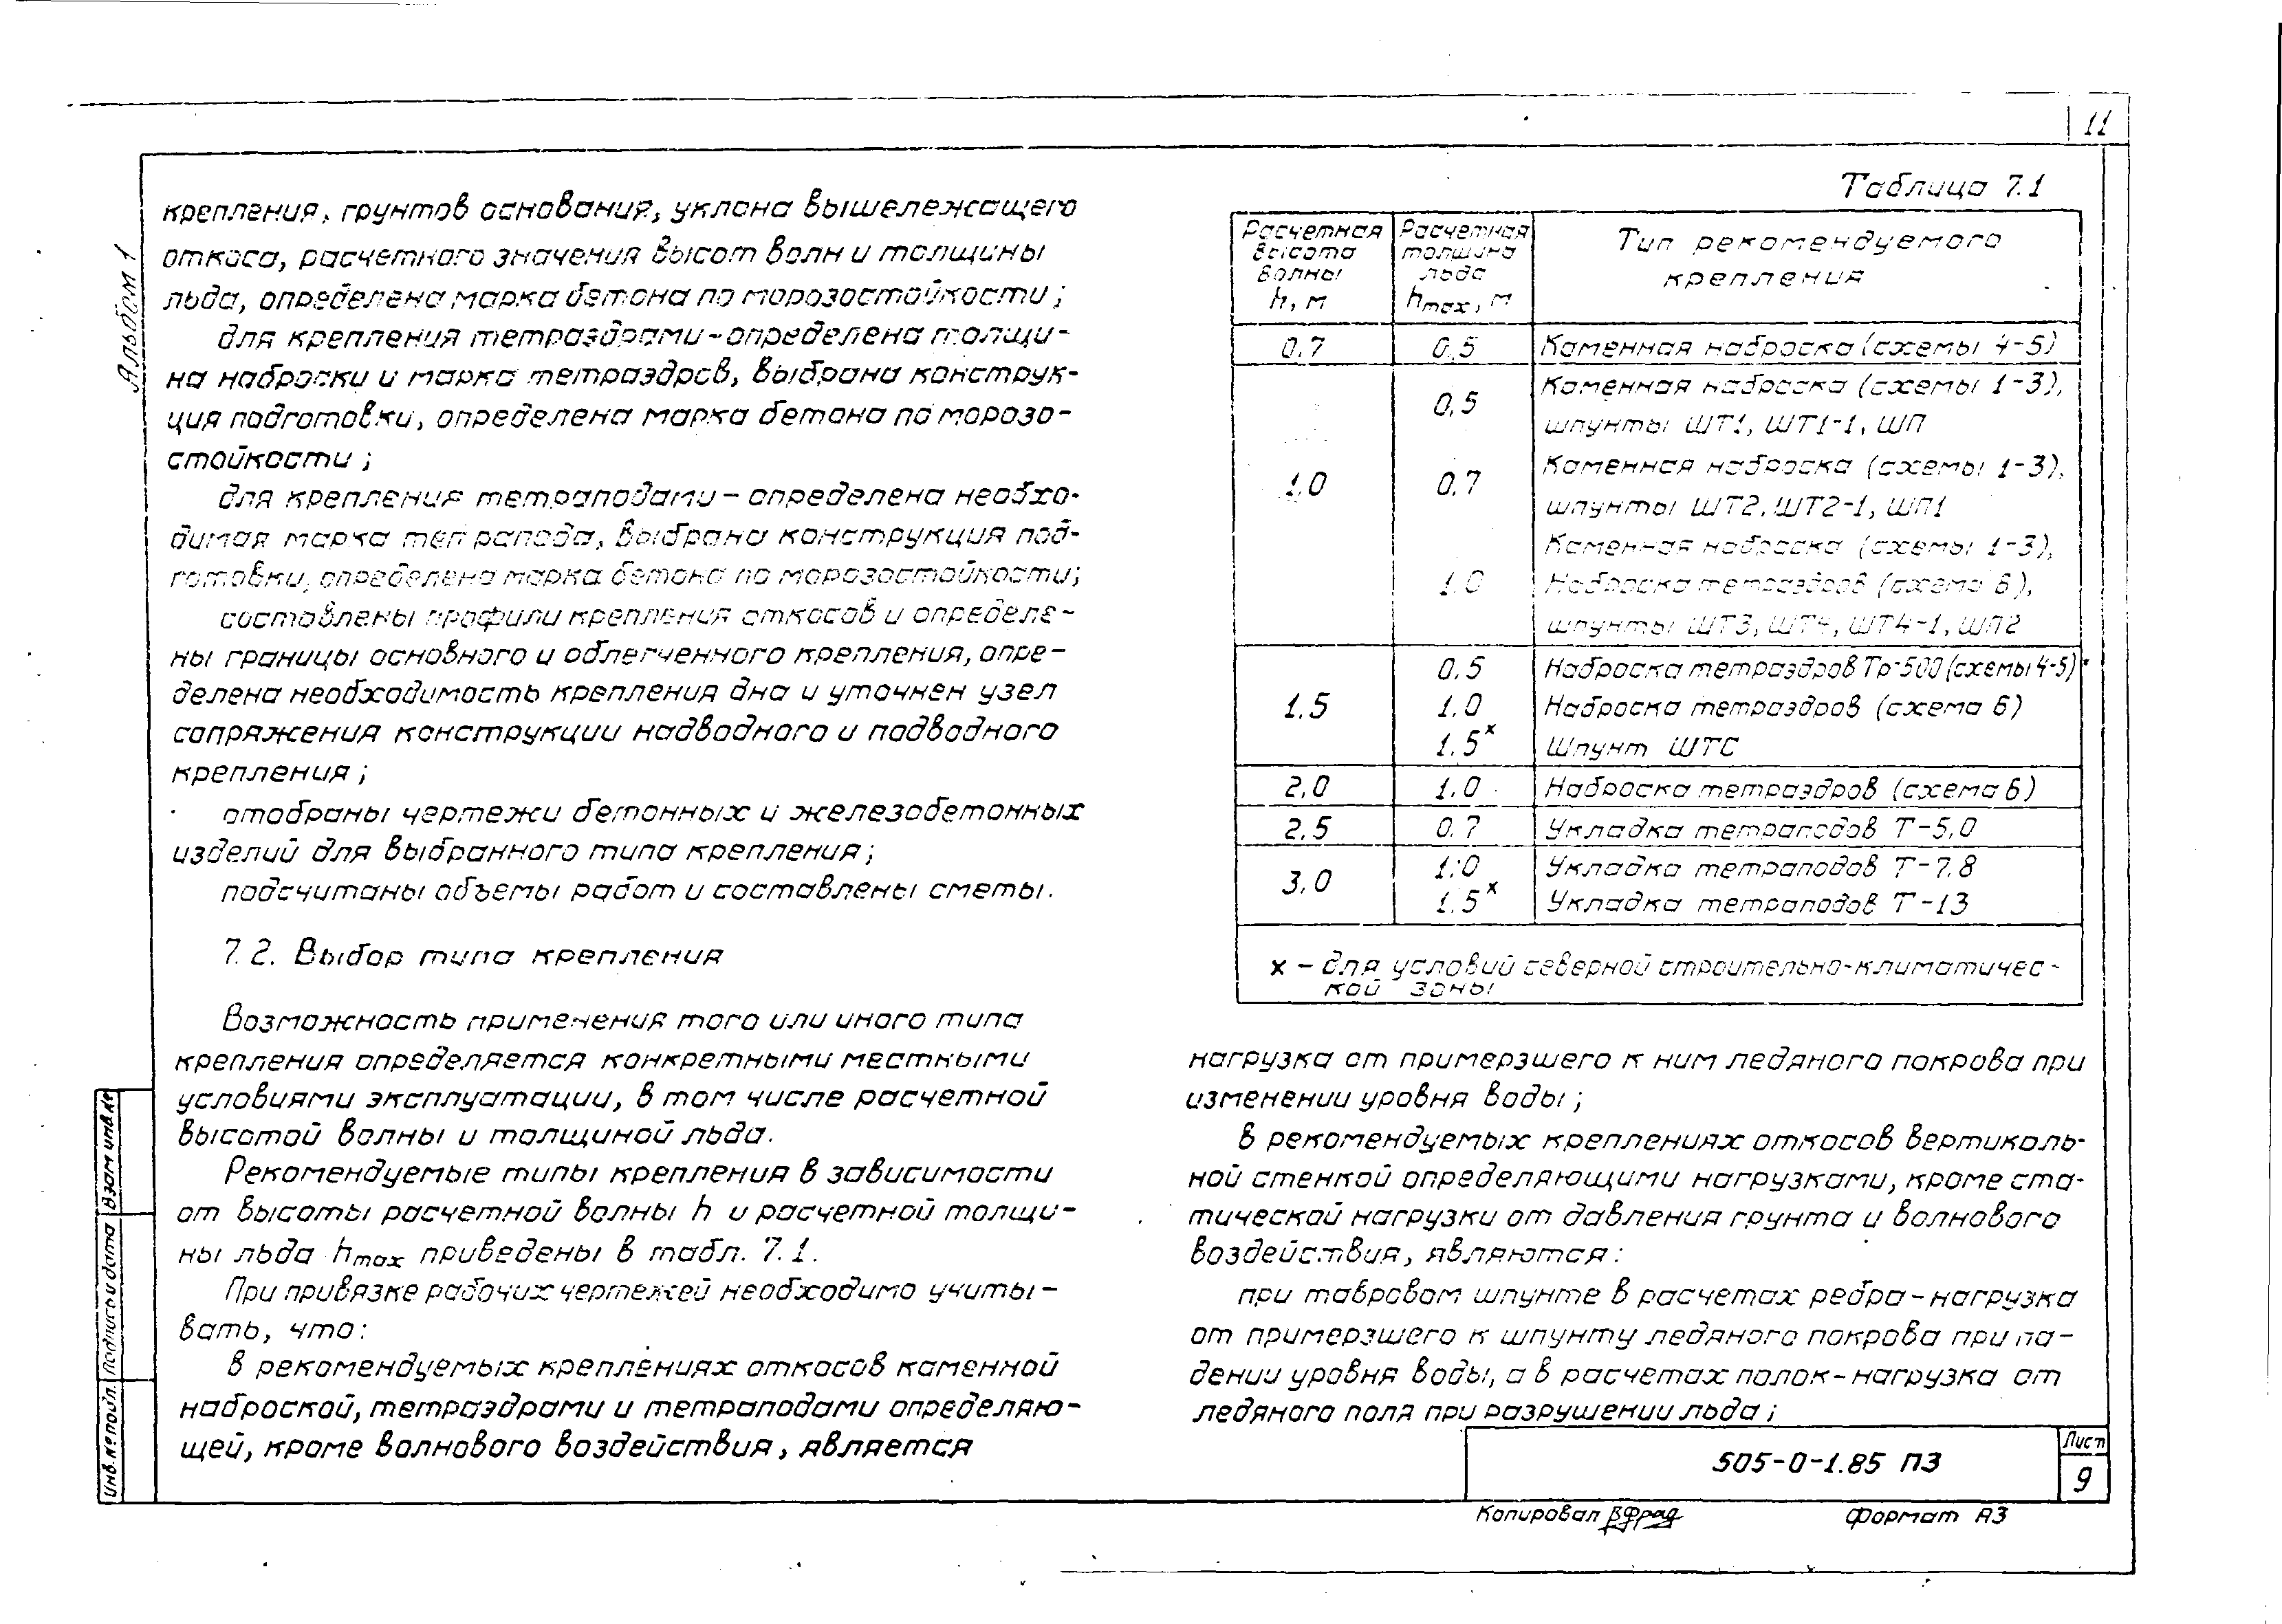 11
Альбом 1
крепления, грунтов основания, уклона вышележащего
откоса, расчетного значения высот волн и толщины
льда, определена марка бетона по морозостойкости;
для крепления тетраэдрами-определена толщи-
на наброски и марка тетраэдров, выбрана конструк-
ция подготовки, определена марка бетона по морозо-
стойкости;
для крепления тетраподами - определена необхо-
димая марка тетрапода, выбрана конструкция под-
готовки, определена марка бетона по морозостойкости;
составлены профили крепления откосов и определе-
ны границы основного и облегченного крепления, опре-
делена необходимость крепления дна и уточнен узел
сопряжения конструкции надводного и подводного
крепления;
отобраны чертежи бетонных и железобетонных
изделий для выбранного типа крепления;
подсчитаны объемы работ и составлены сметы.
7.2. Выбор типа крепления
Возможность применения того или иного типа
крепления определяется конкретными местными
условиями эксплуатации, в том числе расчетной
высотой волны и толщиной льда.
Рекомендуемые типы крепления в зависимости
от высоты расчетной волны h и расчетной толщи-
ны льда hmax приведены в табл. 7.1.
При привязке рабочих чертежей необходимо учиты-
вать, что:
в рекомендуемых креплениях откосов каменной
наброской, тетраэдрами и тетраподами определяю-
щей, кроме волнового воздействия, является
Таблица 7.1
Расчетная высота волны h, м
Расчетная толщина льда hmax, м
Тип рекомендуемого крепления
0,7 0,5 Каменная наброска (схемы 4-5)
1,0 0,5 Каменная наброска (схемы 1-3),
шпунты ШТ1, ШТ1-1, ШП
0,7 Каменная наброска (схемы 1-3),
шпунты ШТ2, ШТ2-1, ШП1
Каменная наброска (схемы 1-3),
1,0 Наброска тетраэдров (схема 6),
шпунты ШТ3, ШТ4, ШТ4-1, ШП2
0,5 Наброска тетраэдров Тр-500 (схемы 4-5)
1,5 1,0 Наброска тетраэдров (схема 6)
1,5х Шпунт ШТС
2,0 1,0 Наброска тетраэдров (схема 6)
2,5 0,7 Укладка тетраподов Т-5,0
3,0 1,0 Укладка тетраподов Т-7,8
1,5х Укладка тетраподов Т-13
х - для условий северной строительно-климатичес-
кой зоны
нагрузка от примерзшего к ним ледяного покрова при
изменении уровня воды;
в рекомендуемых креплениях откосов вертикаль-
ной стенкой определяющими нагрузками, кроме ста-
тической нагрузки от давления грунта и волнового
воздействия, являются:
при тавровом шпунте в расчетах ребра-нагрузка
от примерзшего к шпунту ледяного покрова при па-
дении уровня воды, а в расчетах полок-нагрузка от
ледяного поля при разрушении льда;
Инв.№подл. Подпись и дата Взам инв.№
505-0-1.85 ПЗ
Лист
9
Копировал
Формат А3